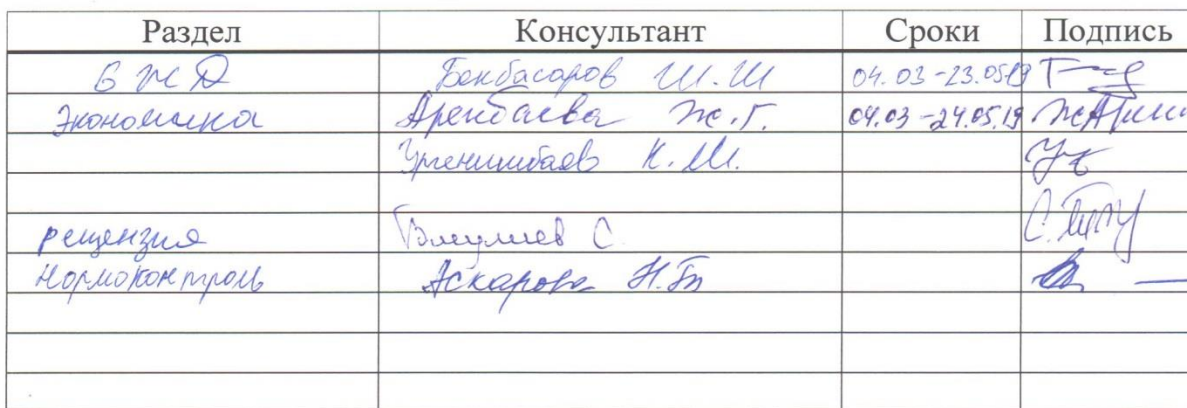 Раздел Консультант Сроки Подпись
БЖД Бекбасаров Ш.Ш 04.03-23.05.19
Экономика Аренбаева Ж.Г. 04.03-24.05.19
К.Ш.
рецензия С.
Нормоконтроль Аскарова